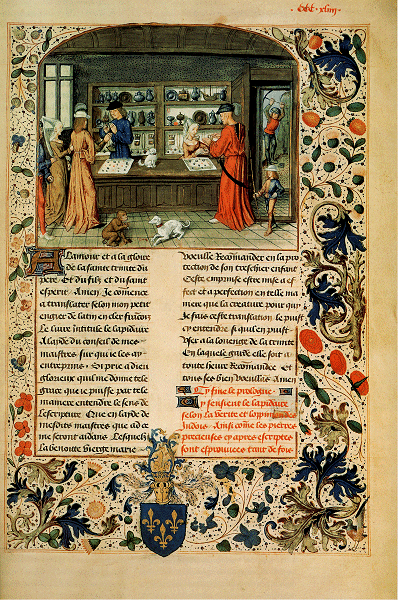 A lamour et a la gloire
de la sainte trinite du
pere. Et du filz et du saint
esperit. Amen. Je comence
a translater selon mon petit
engien de latin en cler francois
Le livre intitule le lapidaire
A laide du conseil de mes
maistres sur qui ie ay
entrepzins. Si prie a dieu
glorieux quil me doinst telle
grace que ie puisse par telle
maniere entendre le sens de
lescripture. Que en laide de
mesdits maistres que ad
me seront aidans. Lesquelz
la benoitte vierge marie
voeulle Recomander en la pro
tection de son treschier enfant
Ceste emprise est mise a ef
fect et a perfection en telle ma
niere que la creature pour quy
Je fais ceste translation le puist
cy entendre si quil en puist
vser a la loenge de la trinite
En laquele guide elle soit a
toute heure Recomandee et
tous ses bien voeullis Amen
Cy fine le prologue.
Cy sensieut le lapidaire
selon la verite et loppinion des
Indois. Ainsi come les pierres
precieuses cy apres escriptes
sont esprouvees tant de fois